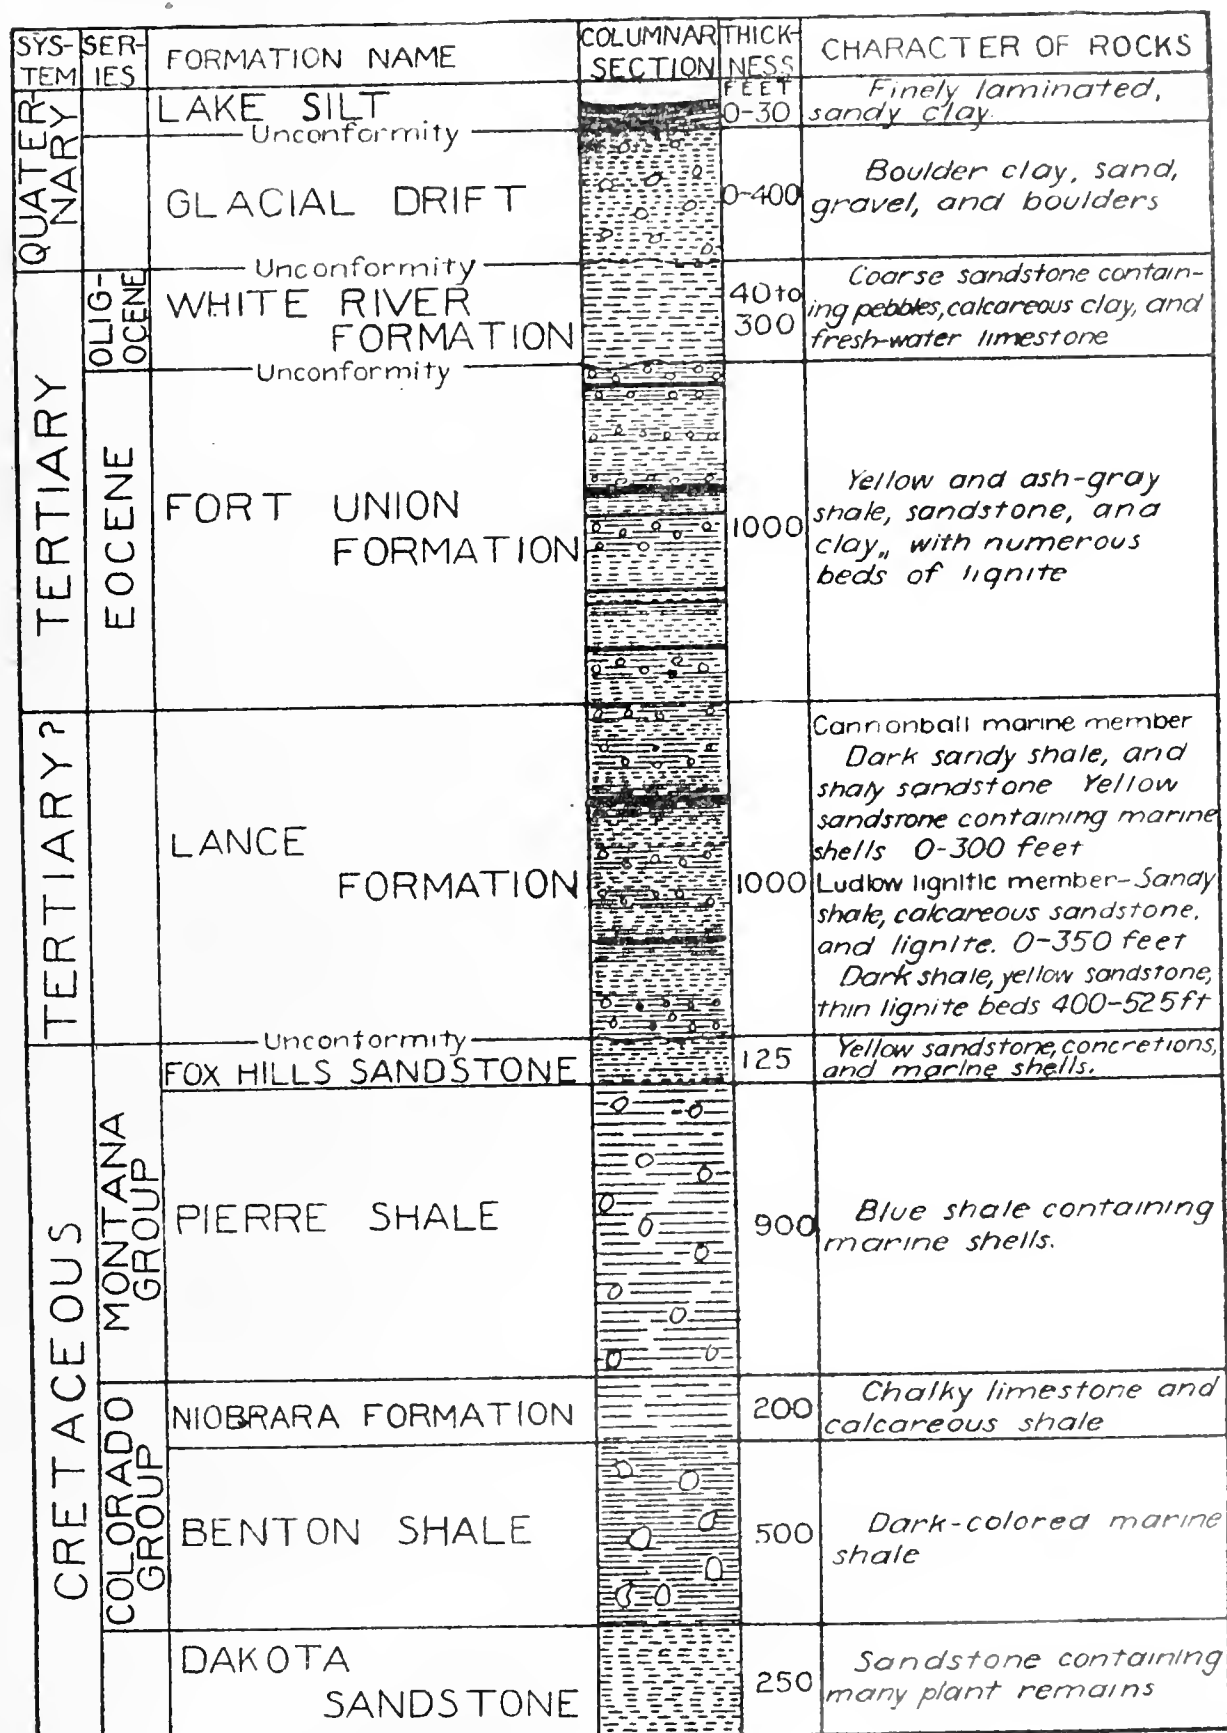 SYS-
TEM
SER-
IES
FORMATION NAME
COLUMNAR
SECTION
THICK-
NESS
CHARACTER OF ROCKS
QUATER-
NARY
LAKE SILT
FEET
0-30
Finely laminated,
sandy clay.
Unconformity
GLACIAL DRIFT
0-400
Boulder clay, sand,
gravel, and boulders
Unconformity
TERTIARY
OLIG-
OCENE
WHITE RIVER
FORMATION
40 to
300
Coarse sandstone contain-
ing pebbles, calcareous clay, and
fresh-water limestone
Unconformity
EOCENE
FORT UNION
FORMATION
1000
Yellow and ash-gray
shale, sandstone, and
clay,, with numerous
beds of lignite
TERTIARY?
LANCE
FORMATION
1000
Cannonball marine member
Dark sandy shale, and
shaly sandstone Yellow
sandstone containing marine
shells 0-300 feet
Ludlow lignitic member-Sandy
shale, calcareous sandstone,
and lignite. 0-350 feet
Dark shale, yellow sandstone,
thin lignite beds 400-525 ft
Unconformity
CRETACEOUS
MONTANA
GROUP
FOX HILLS SANDSTONE
125
Yellow sandstone, concretions,
and marine shells.
PIERRE SHALE
900
Blue shale containing
marine shells.
COLORADO
GROUP
NIOBRARA FORMATION
200
Chalky limestone and
calcareous shale
BENTON SHALE
500
Dark-colored marine
shale
DAKOTA
SANDSTONE
250
Sandstone containing
many plant remains